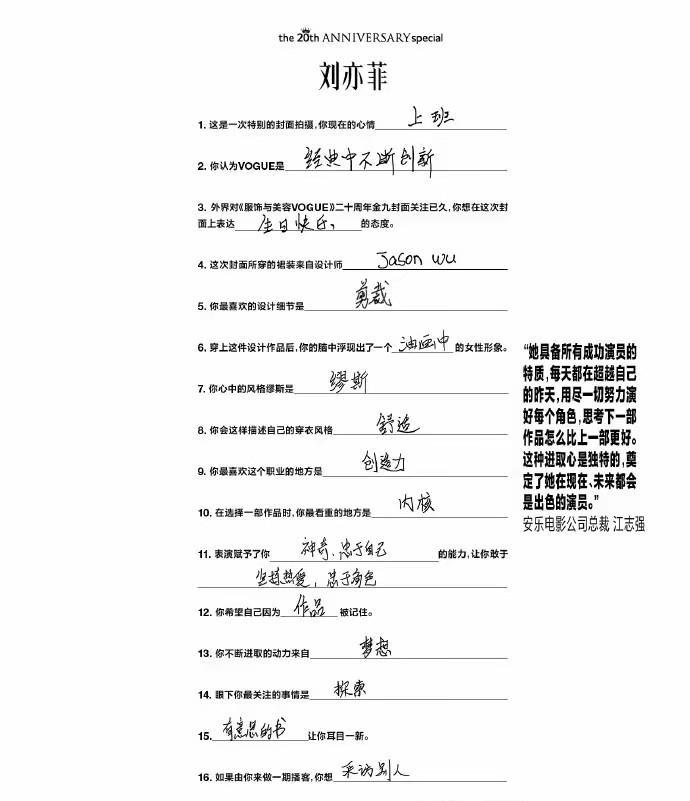 the 20th ANNIVERSARY special
刘亦菲
1. 这是一次特别的封面拍摄,你现在的心情 上班
2. 你认为VOGUE是 经典中不断创新
3. 外界对《服饰与美容VOGUE》二十周年金九封面关注已久,你想在这次封
面上表达 生日快乐, 的态度。
4. 这次封面所穿的裙装来自设计师 Jason wu
5. 你最喜欢的设计细节是 剪裁
6. 穿上这件设计作品后,你的脑中浮现出了一个 油画中 的女性形象。
7. 你心中的风格缪斯是 缪斯
8. 你会这样描述自己的穿衣风格 舒适
9. 你最喜欢这个职业的地方是 创造力
10. 在选择一部作品时,你最看重的地方是 内核
11. 表演赋予了你 神奇、忠于自己 的能力,让你敢于
坚持热爱,忠于角色
12. 你希望自己因为 作品 被记住。
13. 你不断进取的动力来自 梦想
14. 眼下你最关注的事情是 探索
15. 有意思的书 让你耳目一新。
16. 如果由你来做一期播客,你想 采访别人
“她具备所有成功演员的
特质,每天都在超越自己
的昨天,用尽一切努力演
好每个角色,思考下一部
作品怎么比上一部更好。
这种进取心是独特的,奠
定了她在现在、未来都会
是出色的演员。”
安乐电影公司总裁 江志强